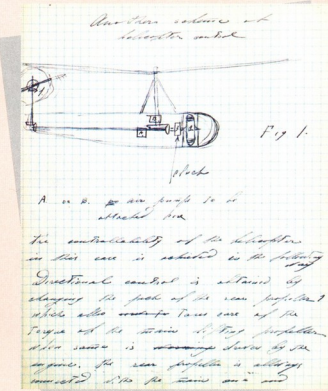 Another scheme of
helicopter control
Fig 1.
block
A or B. air pump to be
attached here
The controllability of the helicopter
in this case is achieved in the following
way
Directional control is obtained by
changing the path of the rear propeller
which also takes care of the
torque of the main lifting propeller
when same is driven by the
engine. The rear propeller is always
connected with the main and